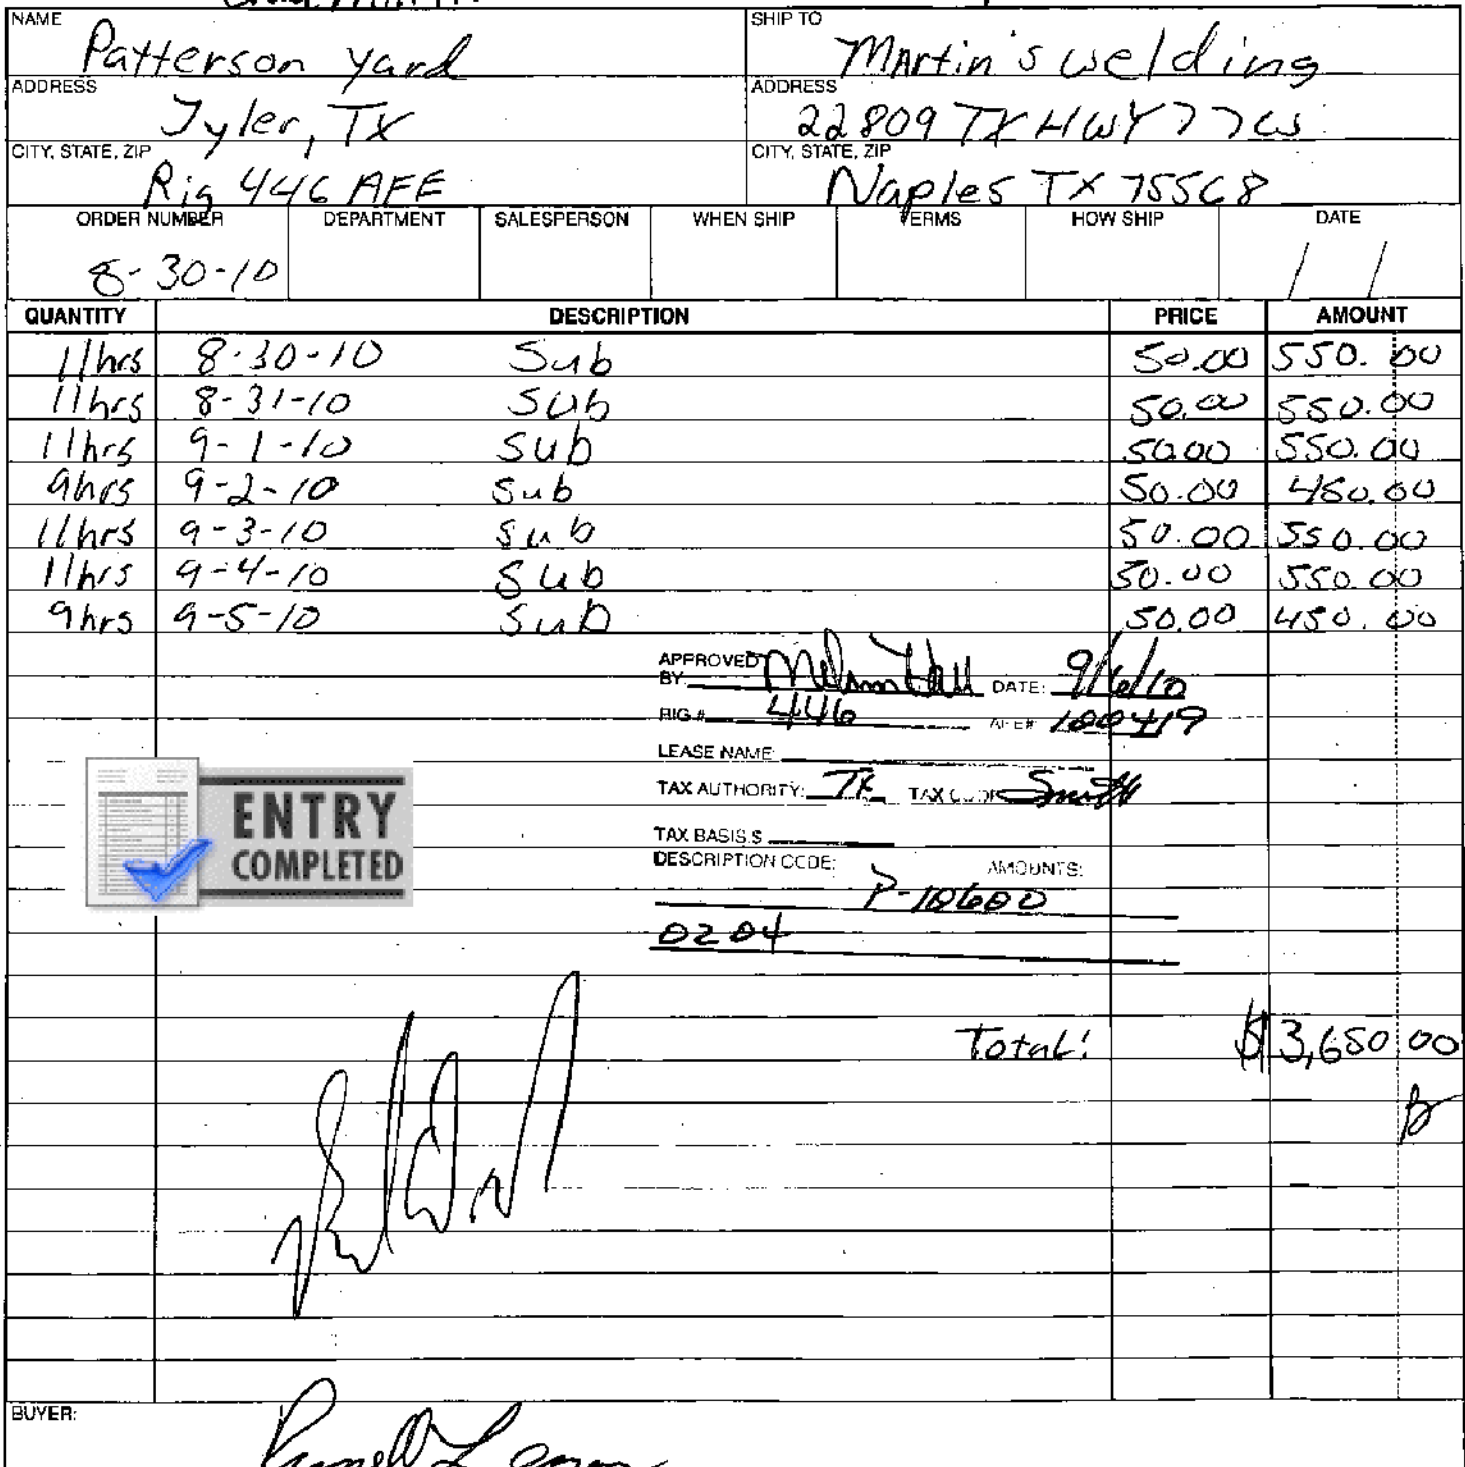 NAME
Patterson yard
SHIP TO
Martin's welding
ADDRESS
Tyler, TX
ADDRESS
22809 TX HWY 77W
CITY, STATE, ZIP
Rig 446 AFE
CITY, STATE, ZIP
Naples TX 75568
ORDER NUMBER DEPARTMENT SALESPERSON WHEN SHIP TERMS HOW SHIP DATE
8-30-10 / /
QUANTITY DESCRIPTION PRICE AMOUNT
11hrs 8-30-10 Sub 50.00 550.00
11hrs 8-31-10 Sub 50.00 550.00
11hrs 9-1-10 Sub 50.00 550.00
9hrs 9-2-10 Sub 50.00 450.00
11hrs 9-3-10 Sub 50.00 550.00
11hrs 9-4-10 Sub 50.00 550.00
9hrs 9-5-10 Sub 50.00 450.00
APPROVED
BY: DATE: 9/6/10
RIG # 446 AFE# 100419
LEASE NAME:
TAX AUTHORITY: TX TAX CODE Smith
TAX BASIS $
DESCRIPTION CODE: AMOUNTS:
P-10600
0204
ENTRY
COMPLETED
Total: $3,650.00
BUYER: